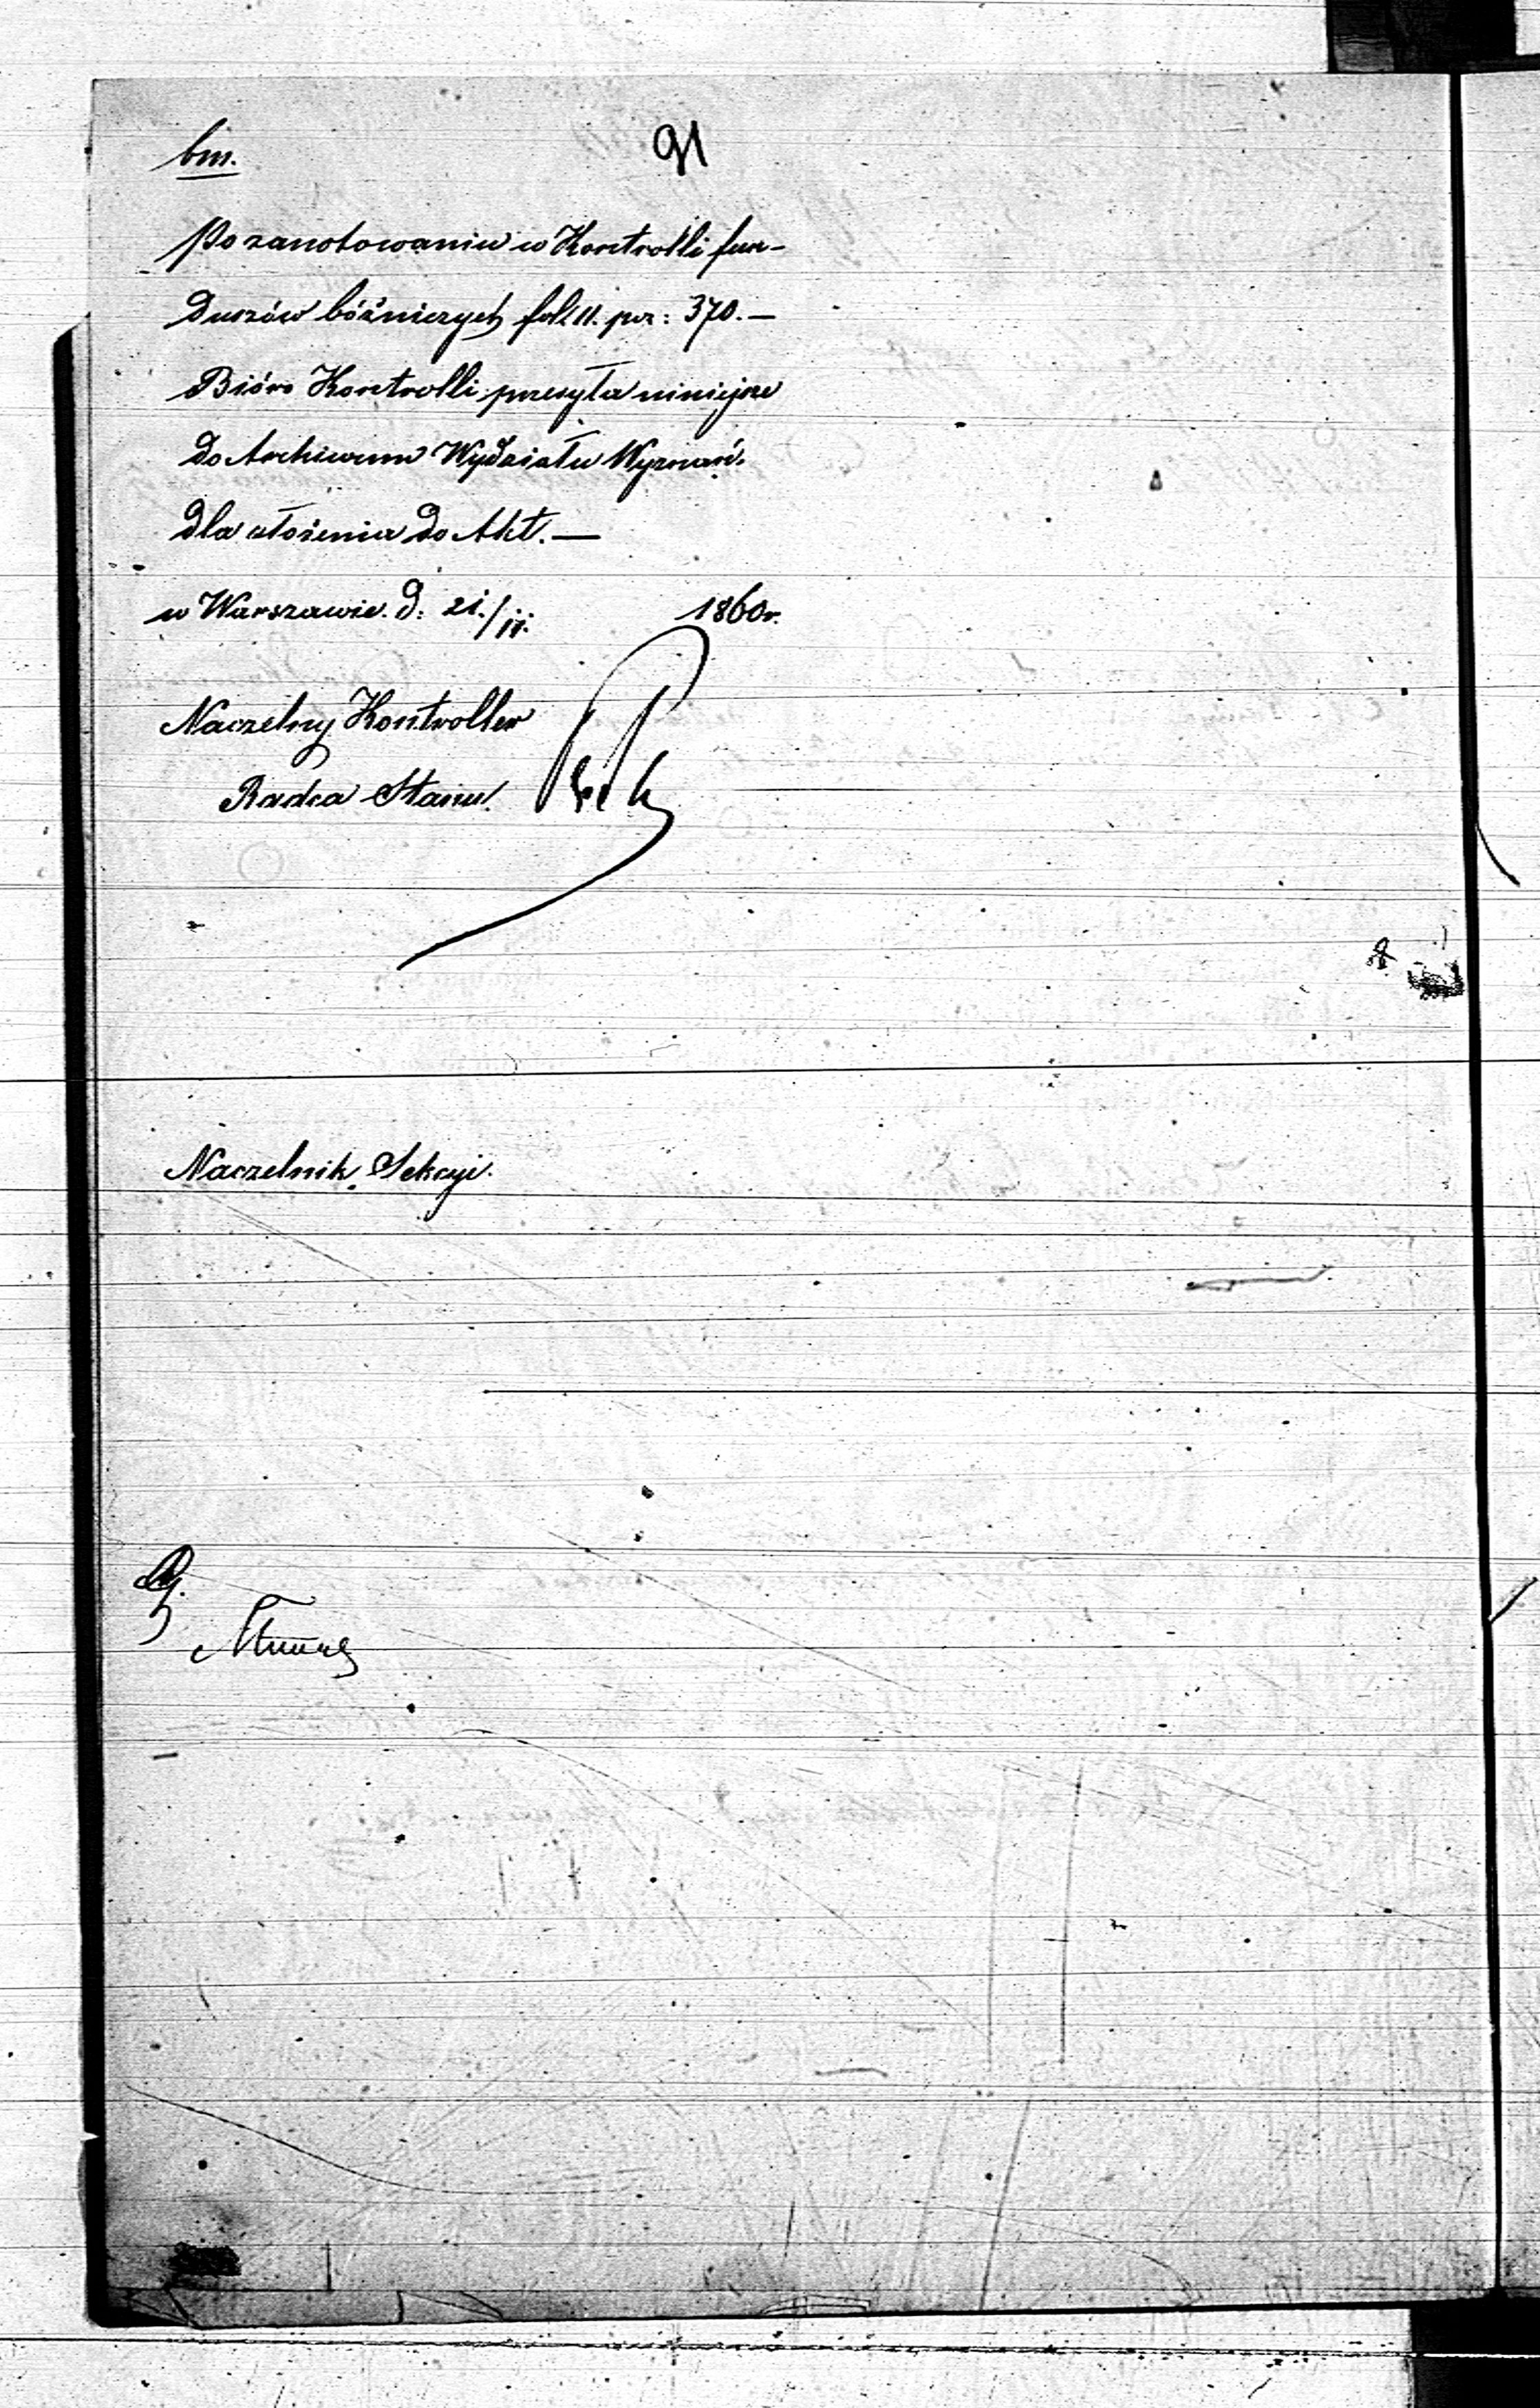 bm.
91
Po zanotowaniu w Kontrolli fun-
duszów bóżniczych fol. 11. poz: 370. —
Bióro Kontrolli przesyła niniejsze
do Archiwum Wydziału Wyznań.
dla ułożenia do Akt. —
w Warszawie. d: 21./11. 1860r.
Naczelny Kontroller
Radca Stanu.
Naczelnik Sekcyi.